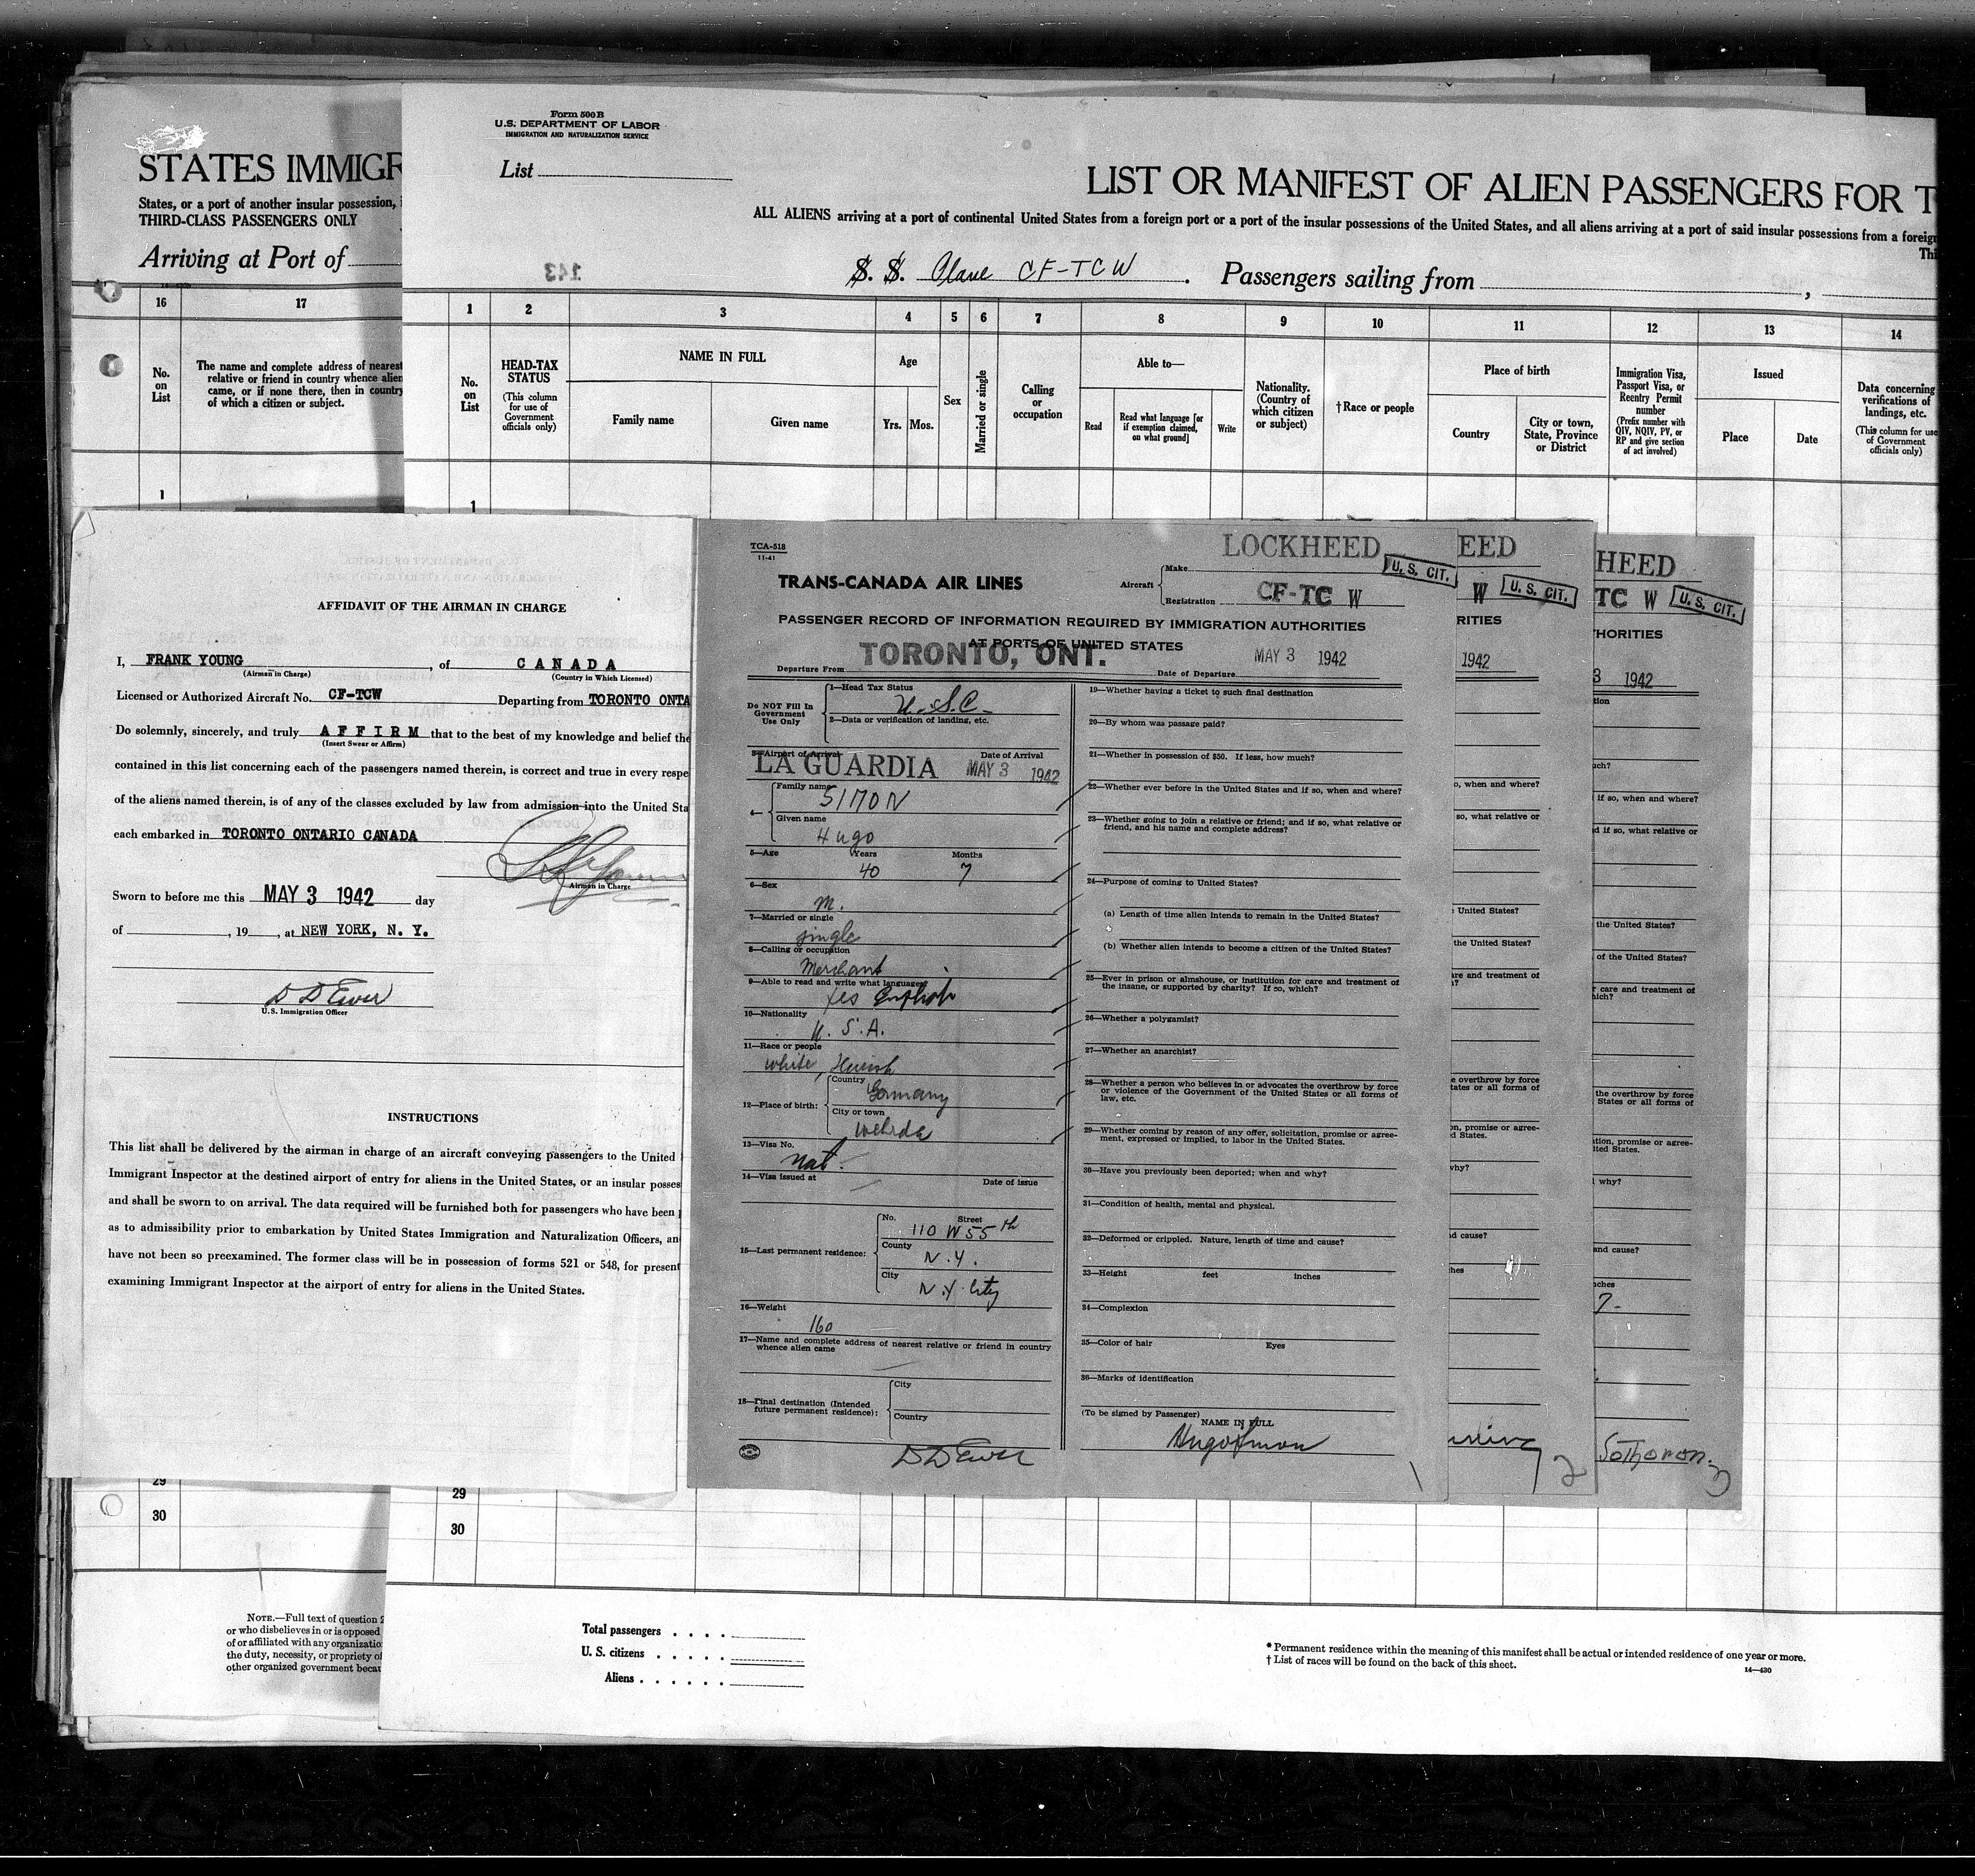 STATES IMMIGR
States, or a port of another insular possession,
THIRD-CLASS PASSENGERS ONLY
Arriving at Port of
16
17
No. on List
The name and complete address of nearest
relative or friend in country whence alien
came, or if none there, then in country
of which a citizen or subject.
1
Form 500 B
U.S. DEPARTMENT OF LABOR
IMMIGRATION AND NATURALIZATION SERVICE
List
LIST OR MANIFEST OF ALIEN PASSENGERS FOR T
ALL ALIENS arriving at a port of continental United States from a foreign port or a port of the insular possessions of the United States, and all aliens arriving at a port of said insular possessions from a foreign
Thi
143
S. S. Plane CF-TCW. Passengers sailing from ,
1 2 3 4 5 6 7 8 9 10 11 12 13 14
No. on List
HEAD-TAX STATUS
(This column for use of Government officials only)
NAME IN FULL
Family name
Given name
Age
Yrs. Mos.
Sex
Married or single
Calling or occupation
Able to—
Read
Read what language [or if exemption claimed, on what ground]
Write
Nationality. (Country of which citizen or subject)
†Race or people
Place of birth
Country
City or town, State, Province or District
Immigration Visa, Passport Visa, or Reentry Permit number
(Prefix number with QIV, NQIV, PV, or RP and give section of act involved)
Issued
Place
Date
Data concerning verifications of landings, etc.
(This column for use of Government officials only)
1
AFFIDAVIT OF THE AIRMAN IN CHARGE
I, FRANK YOUNG, of CANADA
(Airman in Charge) (Country in Which Licensed)
Licensed or Authorized Aircraft No. CF-TCW Departing from TORONTO ONTA
Do solemnly, sincerely, and truly AFFIRM that to the best of my knowledge and belief the
(Insert Swear or Affirm)
contained in this list concerning each of the passengers named therein, is correct and true in every respe
of the aliens named therein, is of any of the classes excluded by law from admission into the United Sta
each embarked in TORONTO ONTARIO CANADA
Airman in Charge
Sworn to before me this MAY 3 1942 day
of , 19 , at NEW YORK, N. Y.
D D Ewer
U.S. Immigration Officer
INSTRUCTIONS
This list shall be delivered by the airman in charge of an aircraft conveying passengers to the United
Immigrant Inspector at the destined airport of entry for aliens in the United States, or an insular posses
and shall be sworn to on arrival. The data required will be furnished both for passengers who have been
as to admissibility prior to embarkation by United States Immigration and Naturalization Officers, an
have not been so preexamined. The former class will be in possession of forms 521 or 548, for present
examining Immigrant Inspector at the airport of entry for aliens in the United States.
TCA-518
11-41
TRANS-CANADA AIR LINES
Aircraft
Make LOCKHEED
Registration CF-TC W
U. S. CIT.
PASSENGER RECORD OF INFORMATION REQUIRED BY IMMIGRATION AUTHORITIES
AT PORTS OF UNITED STATES
Departure From TORONTO, ONT. Date of Departure MAY 3 1942
Do NOT Fill In Government Use Only
1—Head Tax Status
U.S.C.
2—Data or verification of landing, etc.
3—Airport of Arrival Date of Arrival
LA GUARDIA MAY 3 1942
4—
Family name
SIMON
Given name
Hugo
5—Age Years Months
40 7
6—Sex
M.
7—Married or single
single
8—Calling or occupation
Merchant
9—Able to read and write what languages
Yes English
10—Nationality
U. S. A.
11—Race or people
White,
12—Place of birth:
Country
Germany
City or town
Wehrda
13—Visa No.
Nat.
14—Visa issued at Date of issue
15—Last permanent residence:
No. Street
110 W 55th
County
N. Y.
City
N. Y. City
16—Weight
160
17—Name and complete address of nearest relative or friend in country
whence alien came
18—Final destination (Intended
future permanent residence):
City
Country
D D Ewer
19—Whether having a ticket to such final destination
20—By whom was passage paid?
21—Whether in possession of $50. If less, how much?
22—Whether ever before in the United States and if so, when and where?
23—Whether going to join a relative or friend; and if so, what relative or
friend, and his name and complete address?
24—Purpose of coming to United States?
(a) Length of time alien intends to remain in the United States?
(b) Whether alien intends to become a citizen of the United States?
25—Ever in prison or almshouse, or institution for care and treatment of
the insane, or supported by charity? If so, which?
26—Whether a polygamist?
27—Whether an anarchist?
28—Whether a person who believes in or advocates the overthrow by force
or violence of the Government of the United States or all forms of
law, etc.
29—Whether coming by reason of any offer, solicitation, promise or agree-
ment, expressed or implied, to labor in the United States.
30—Have you previously been deported; when and why?
31—Condition of health, mental and physical.
32—Deformed or crippled. Nature, length of time and cause?
33—Height feet inches
34—Complexion
35—Color of hair Eyes
36—Marks of identification
(To be signed by Passenger)
NAME IN FULL
Hugo Simon
EED
W
U. S. CIT.
RITIES
1942
o, when and where?
so, what relative or
United States?
the United States?
are and treatment of
?
e overthrow by force
tates or all forms of
n, promise or agree-
d States.
why?
d cause?
hes
2
HEED
TC W
U. S. CIT.
HORITIES
3 1942
tion
uch?
if so, when and where?
d if so, what relative or
the United States?
of the United States?
r care and treatment of
hich?
the overthrow by force
States or all forms of
tion, promise or agree-
ited States.
why?
and cause?
nches
7-
Sothoron
3
29
30
29
30
NOTE.—Full text of question 2
or who disbelieves in or is opposed
of or affiliated with any organizatio
the duty, necessity, or propriety of
other organized government becau
Total passengers . . . .
U. S. citizens . . . . .
Aliens . . . . . .
* Permanent residence within the meaning of this manifest shall be actual or intended residence of one year or more.
† List of races will be found on the back of this sheet.
14—430